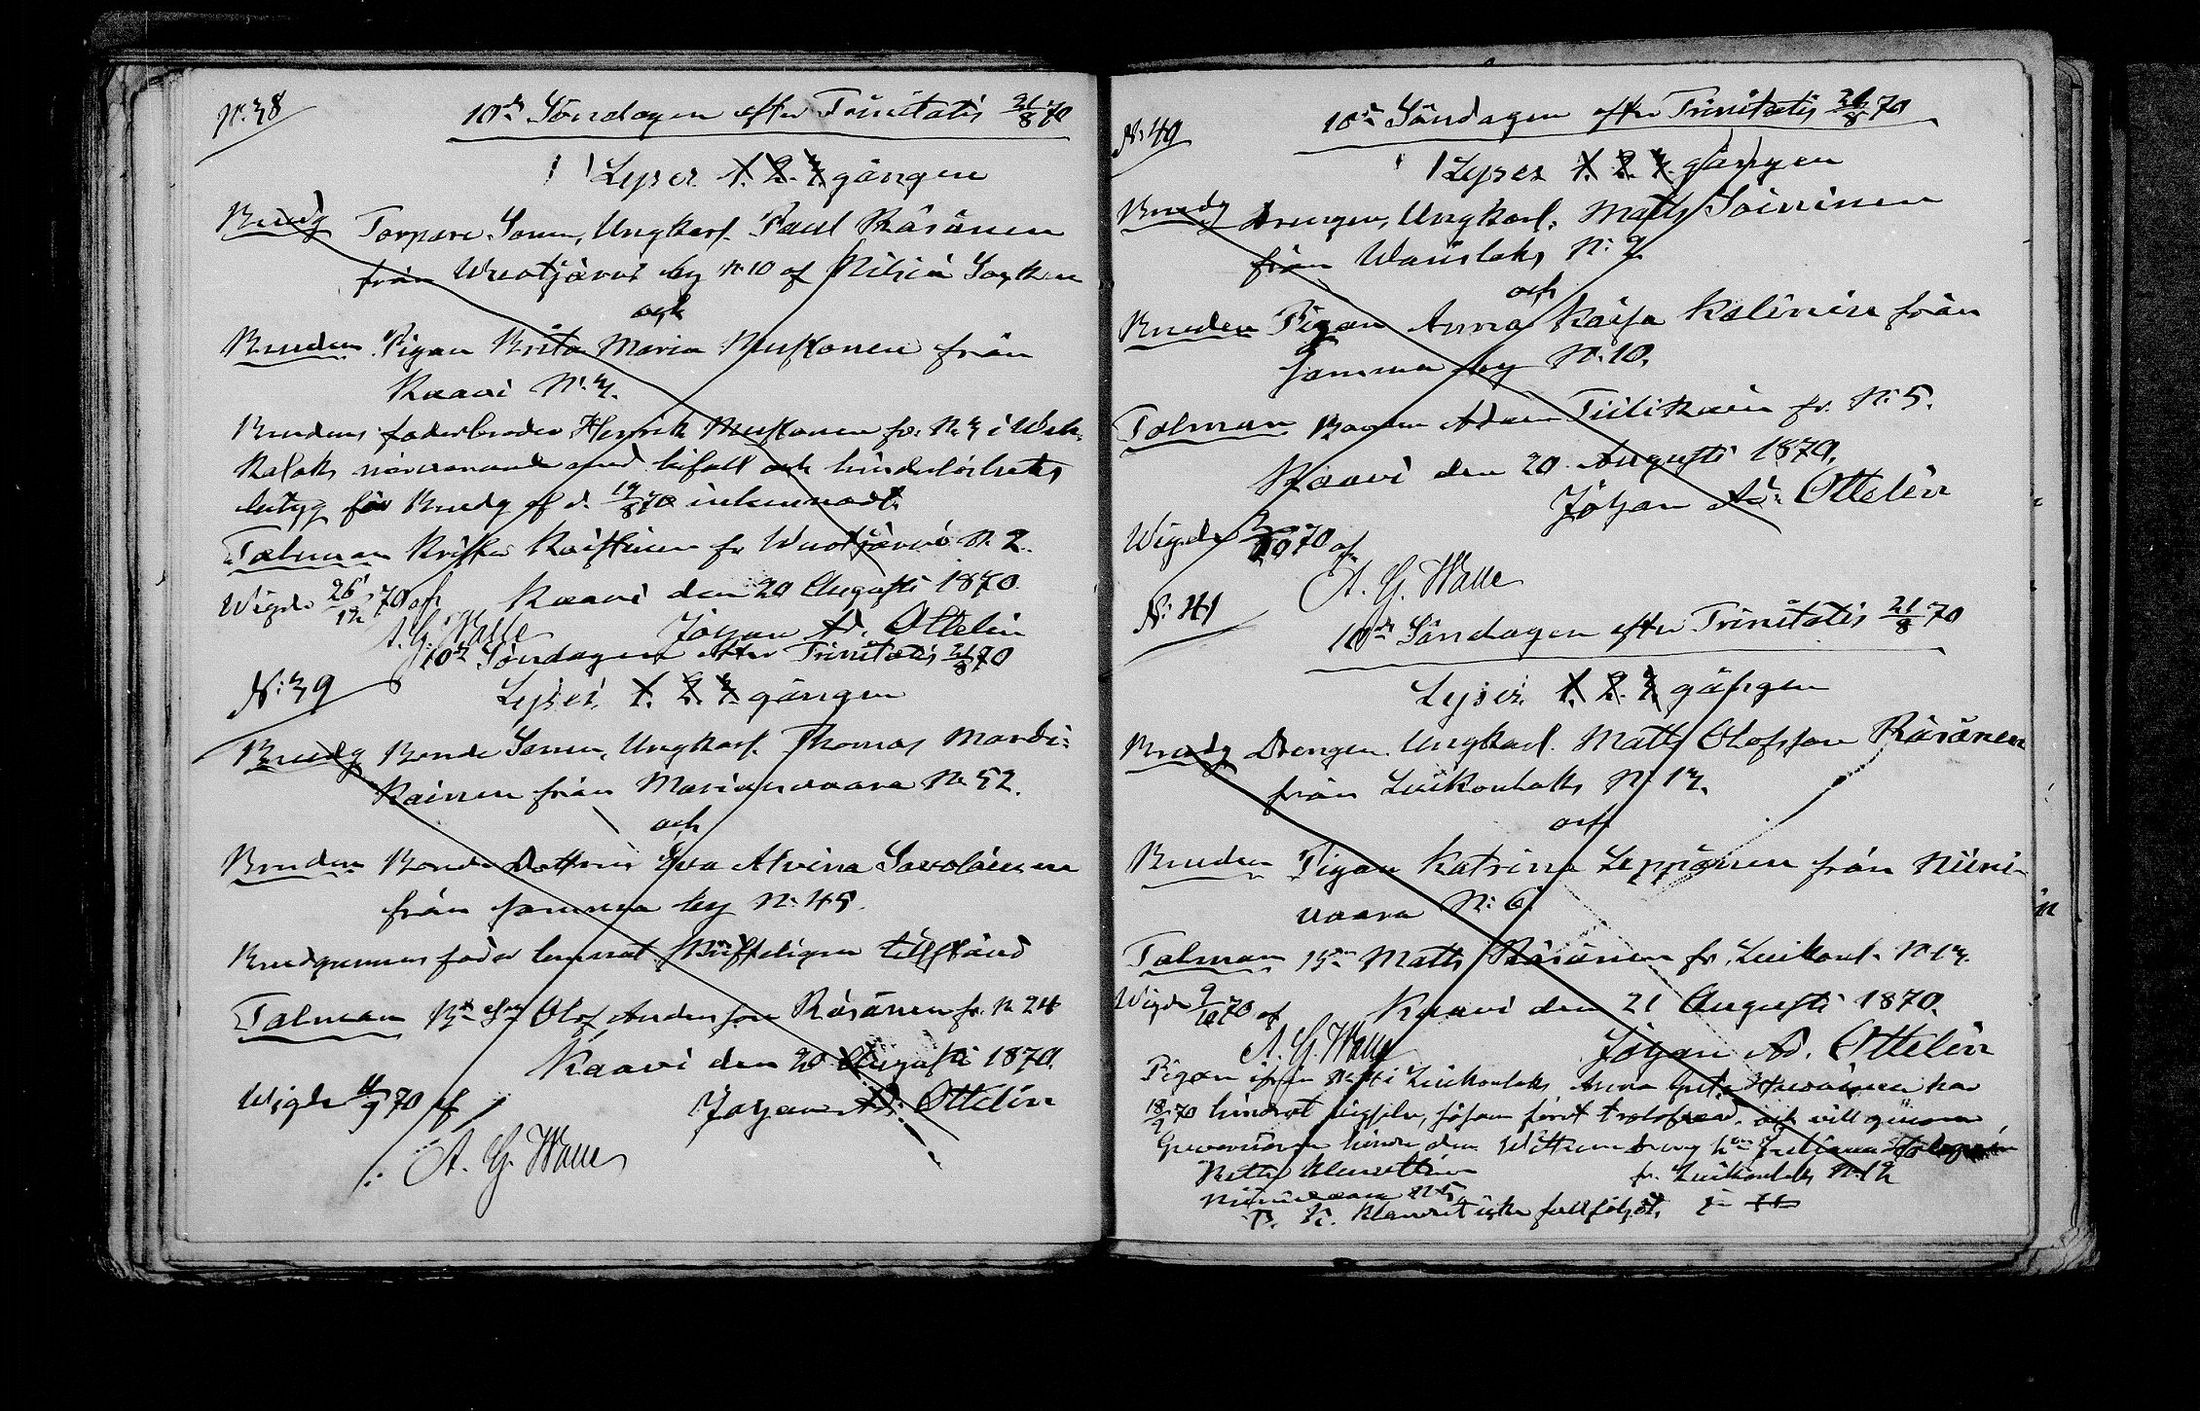 N:38
10de Söndagen efter Trinitatis 21/8 70
Lyses 1. 2. 3. gången
Brudg Torpare Sonen, Ungkarl. Paul Räsänen
från Wuotjärvi by N:10 af Nilsiä Socken
och
Bruden Pigan Brita Maria Ruskonen från
Kaavi N:3.
Brudens faderbroder Henrik Ruskonen fr. N:3 i
närvarande med bifall och hinderlöshets
betyg för Brudg af d. 19/8 70 inlemnadt.
Talman Krister Kaisinen fr Wuotjärvi N:2.
Wigde 26/12 70 af
Kaavi den 20 Augusti 1870.
A. G. Walle
Johan Ad. Ottelin
N:39
10de Söndagen efter Trinitatis 21/8 70
Lyses 1. 2. 3. gången
Brudg Bonde Sonen, Ungkarl. Thomas Mardi-
kainen från Marianvaara N:52.
och
Bruden Bonde Dottren Eva Alvina Savolainen
från samma by N:45.
Brudgummens fader lemnat skrifteligen tillstånd
Talman Olof Andersson Räsänen fr. N:24
Kaavi den 20 Augusti 1870.
Wigde 11/9 70 af
Johan Ad. Ottelin
A. G. Walle
N:40
10de Söndagen efter Trinitatis 21/8 70
Lyses 1. 2. 3. gången
Brudg Drengen, Ungkarl. Matts Soininen
från Wanislaks N:2
och
Bruden Pigan Anna Kaisa Kalinin från
samma by N:10.
Talman Bonden Adam Tiilikain fr. N:5.
Kaavi den 20 Augusti 1870.
Johan Ad. Ottelin
Wigde 2/10 70 af
A. G. Walle
N:41
10de Söndagen efter Trinitatis 21/8 70
Lyses 1. 2. 3. gången
Brudg Drengen Ungkarl. Matts Olofsson Räsänen
från Luikonlaks N:13.
och
Bruden Pigan Katrina Leppänen från Niini-
vaara N:6.
Talman Matts Räsänen fr. Luikonl. N:13.
Wigde 9/10 70 af
Kaavi den 21 Augusti 1870.
A. G. Walle
Johan Ad. Ottelin
Pigan ifrån i Luikonlaks Anna Greta har
18/9 70 hindrat såsom förut trolofvad, och vill genom
hindra dem
fr. Luikonlaks N:12
Niinivaara N:5
Klandret icke fullföljdt.